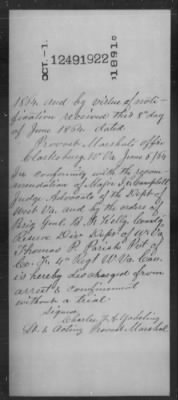 OCT.-1. 12491922 1891
1864, and by virtue of noti-
fication received this 8" day
of June 1864. dated
Provost Marshals Office
Clarksburg W Va June 5/64
In conformity with the recom-
mendation of Major J. Campbell
Judge Advocate of the Dept of
West Va. and by the orders of
Brig Genl. B. F. Kelly Comdg
Reserve Div. Dept of W Va
Thomas P. Parish Pvt of
Co. F. 4" Regt W Va. Cav.
is hereby discharged from
arrest & confinement
without a trial
Signed
Charles F. A.
Lt. & Acting Provost Marshal